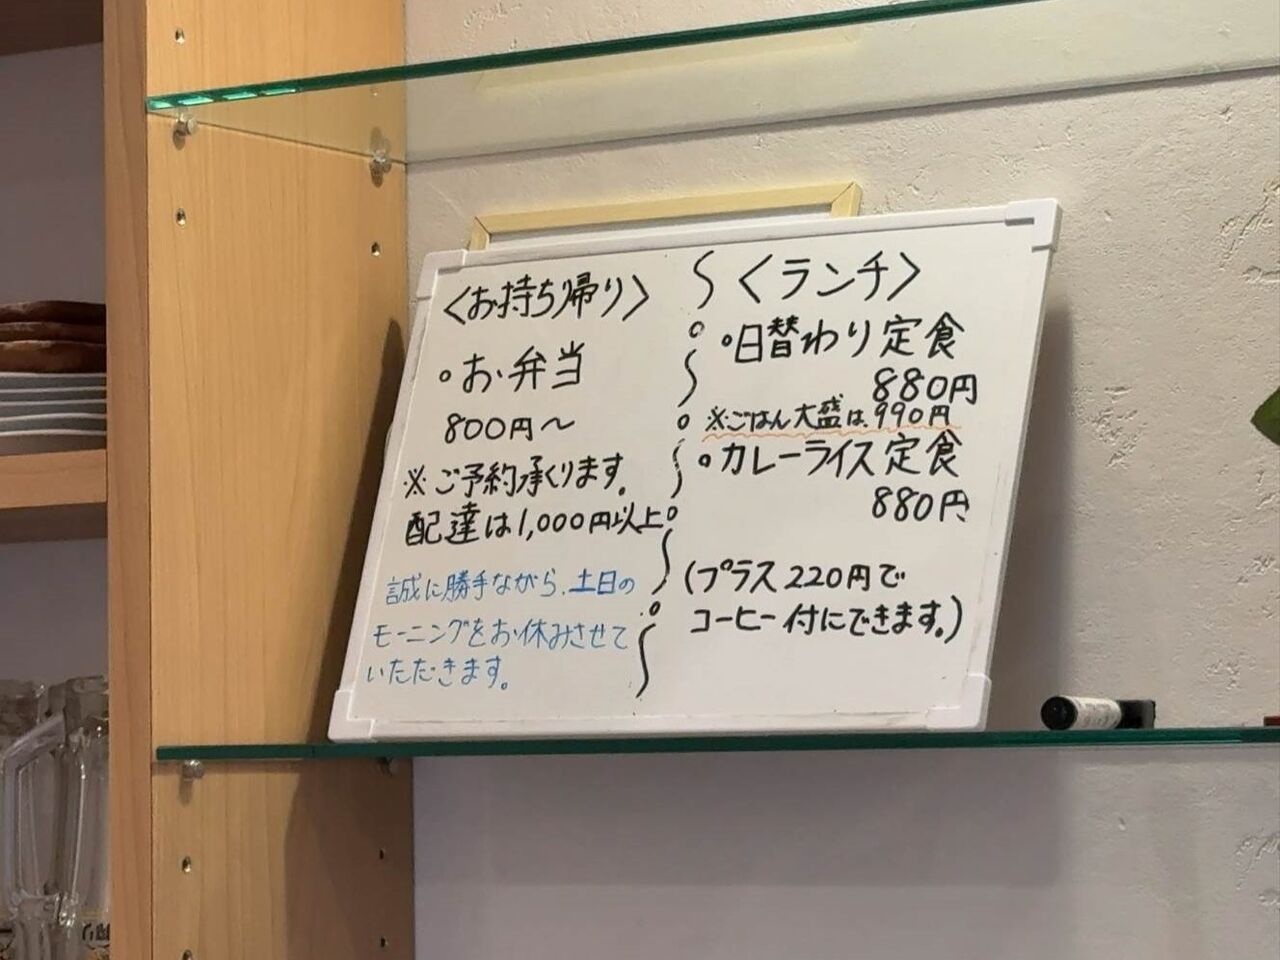 〈お持ち帰り〉
・お弁当
800円～
※ご予約承ります。
配達は1,000円以上
誠に勝手ながら、土日の
モーニングをお休みさせて
いただきます。
〈ランチ〉
・日替わり定食
880円
※ごはん大盛は、990円
・カレーライス定食
880円
(プラス220円で
コーヒー付にできます。)